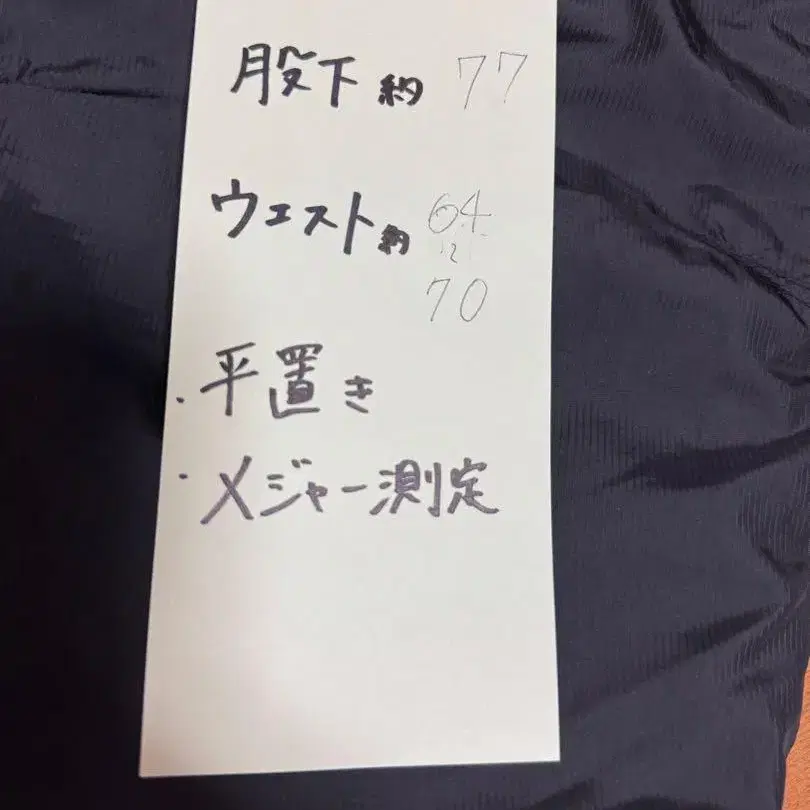 股下 約 77
ウエスト 約 64
70
・平置き
・メジャー測定